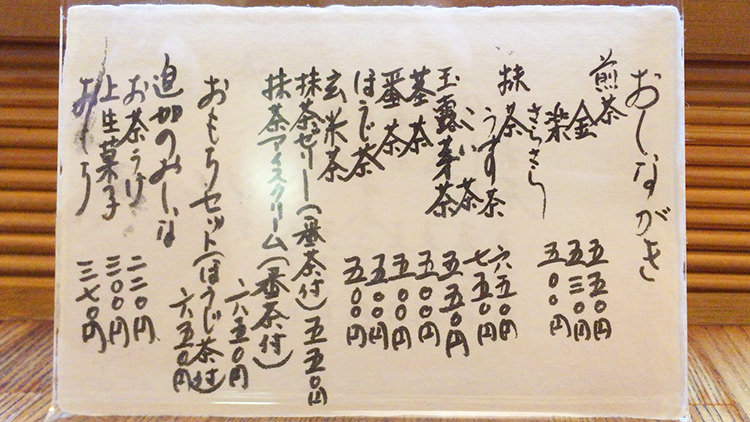 おしながき
煎茶 金 五五〇円
楽 五三〇円
さらさら 五〇〇円
抹茶 うす茶 六五〇円
こい茶 七五〇円
玉露芽茶 五五〇円
茎茶 五〇〇円
番茶 五〇〇円
ほうじ茶 五〇〇円
玄米茶 五〇〇円
抹茶ゼリー(番茶付) 五五〇円
抹茶アイスクリーム(番茶付) 六五〇円
おもちセット(ほうじ茶付) 六五〇円
追加のおしな
お茶うけ 二二〇円
上生菓子 三〇〇円
三七〇円